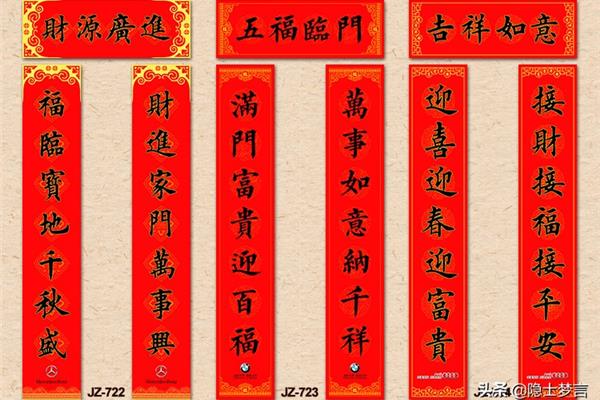 財源廣進
福臨寶地千秋盛
財進家門萬事興
Mercedes-Benz
Mercedes-Benz
JZ-722
五福臨門
滿門富貴迎百福
萬事如意納千祥
JZ-723
吉祥如意
迎喜迎春迎富貴
接財接福接平安
头条 @隐士梦言